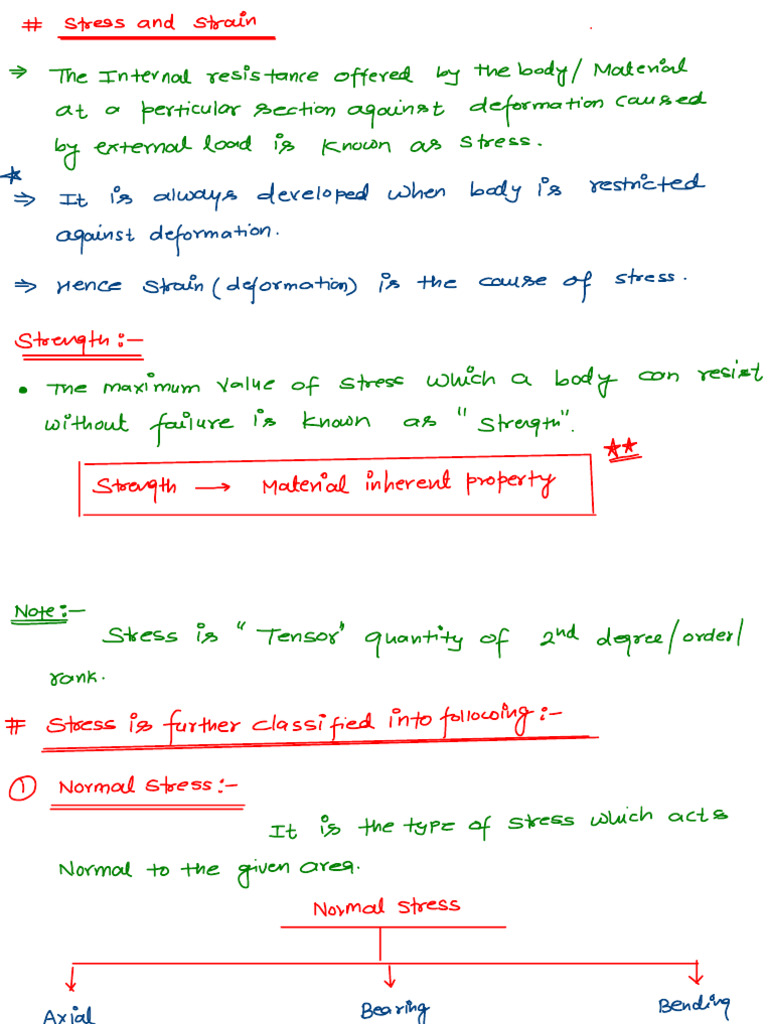 # Stress and Strain
⇒ The Internal resistance offered by the body/ Material
at a perticular section against deformation caused
by external load is known as stress.
★
⇒ It is always developed when body is restricted
against deformation.
⇒ Hence strain (deformation) is the cause of stress.
Strength :-
• The maximum value of stress which a body can resist
without failure is known as "Strength".
★★
Strength → Material inherent property
Note :-
Stress is "Tensor" quantity of 2nd degree/order/
rank.
# Stress is further classified into following :-
① Normal Stress :-
It is the type of stress which acts
Normal to the given area.
Normal stress
Axial Bearing Bending